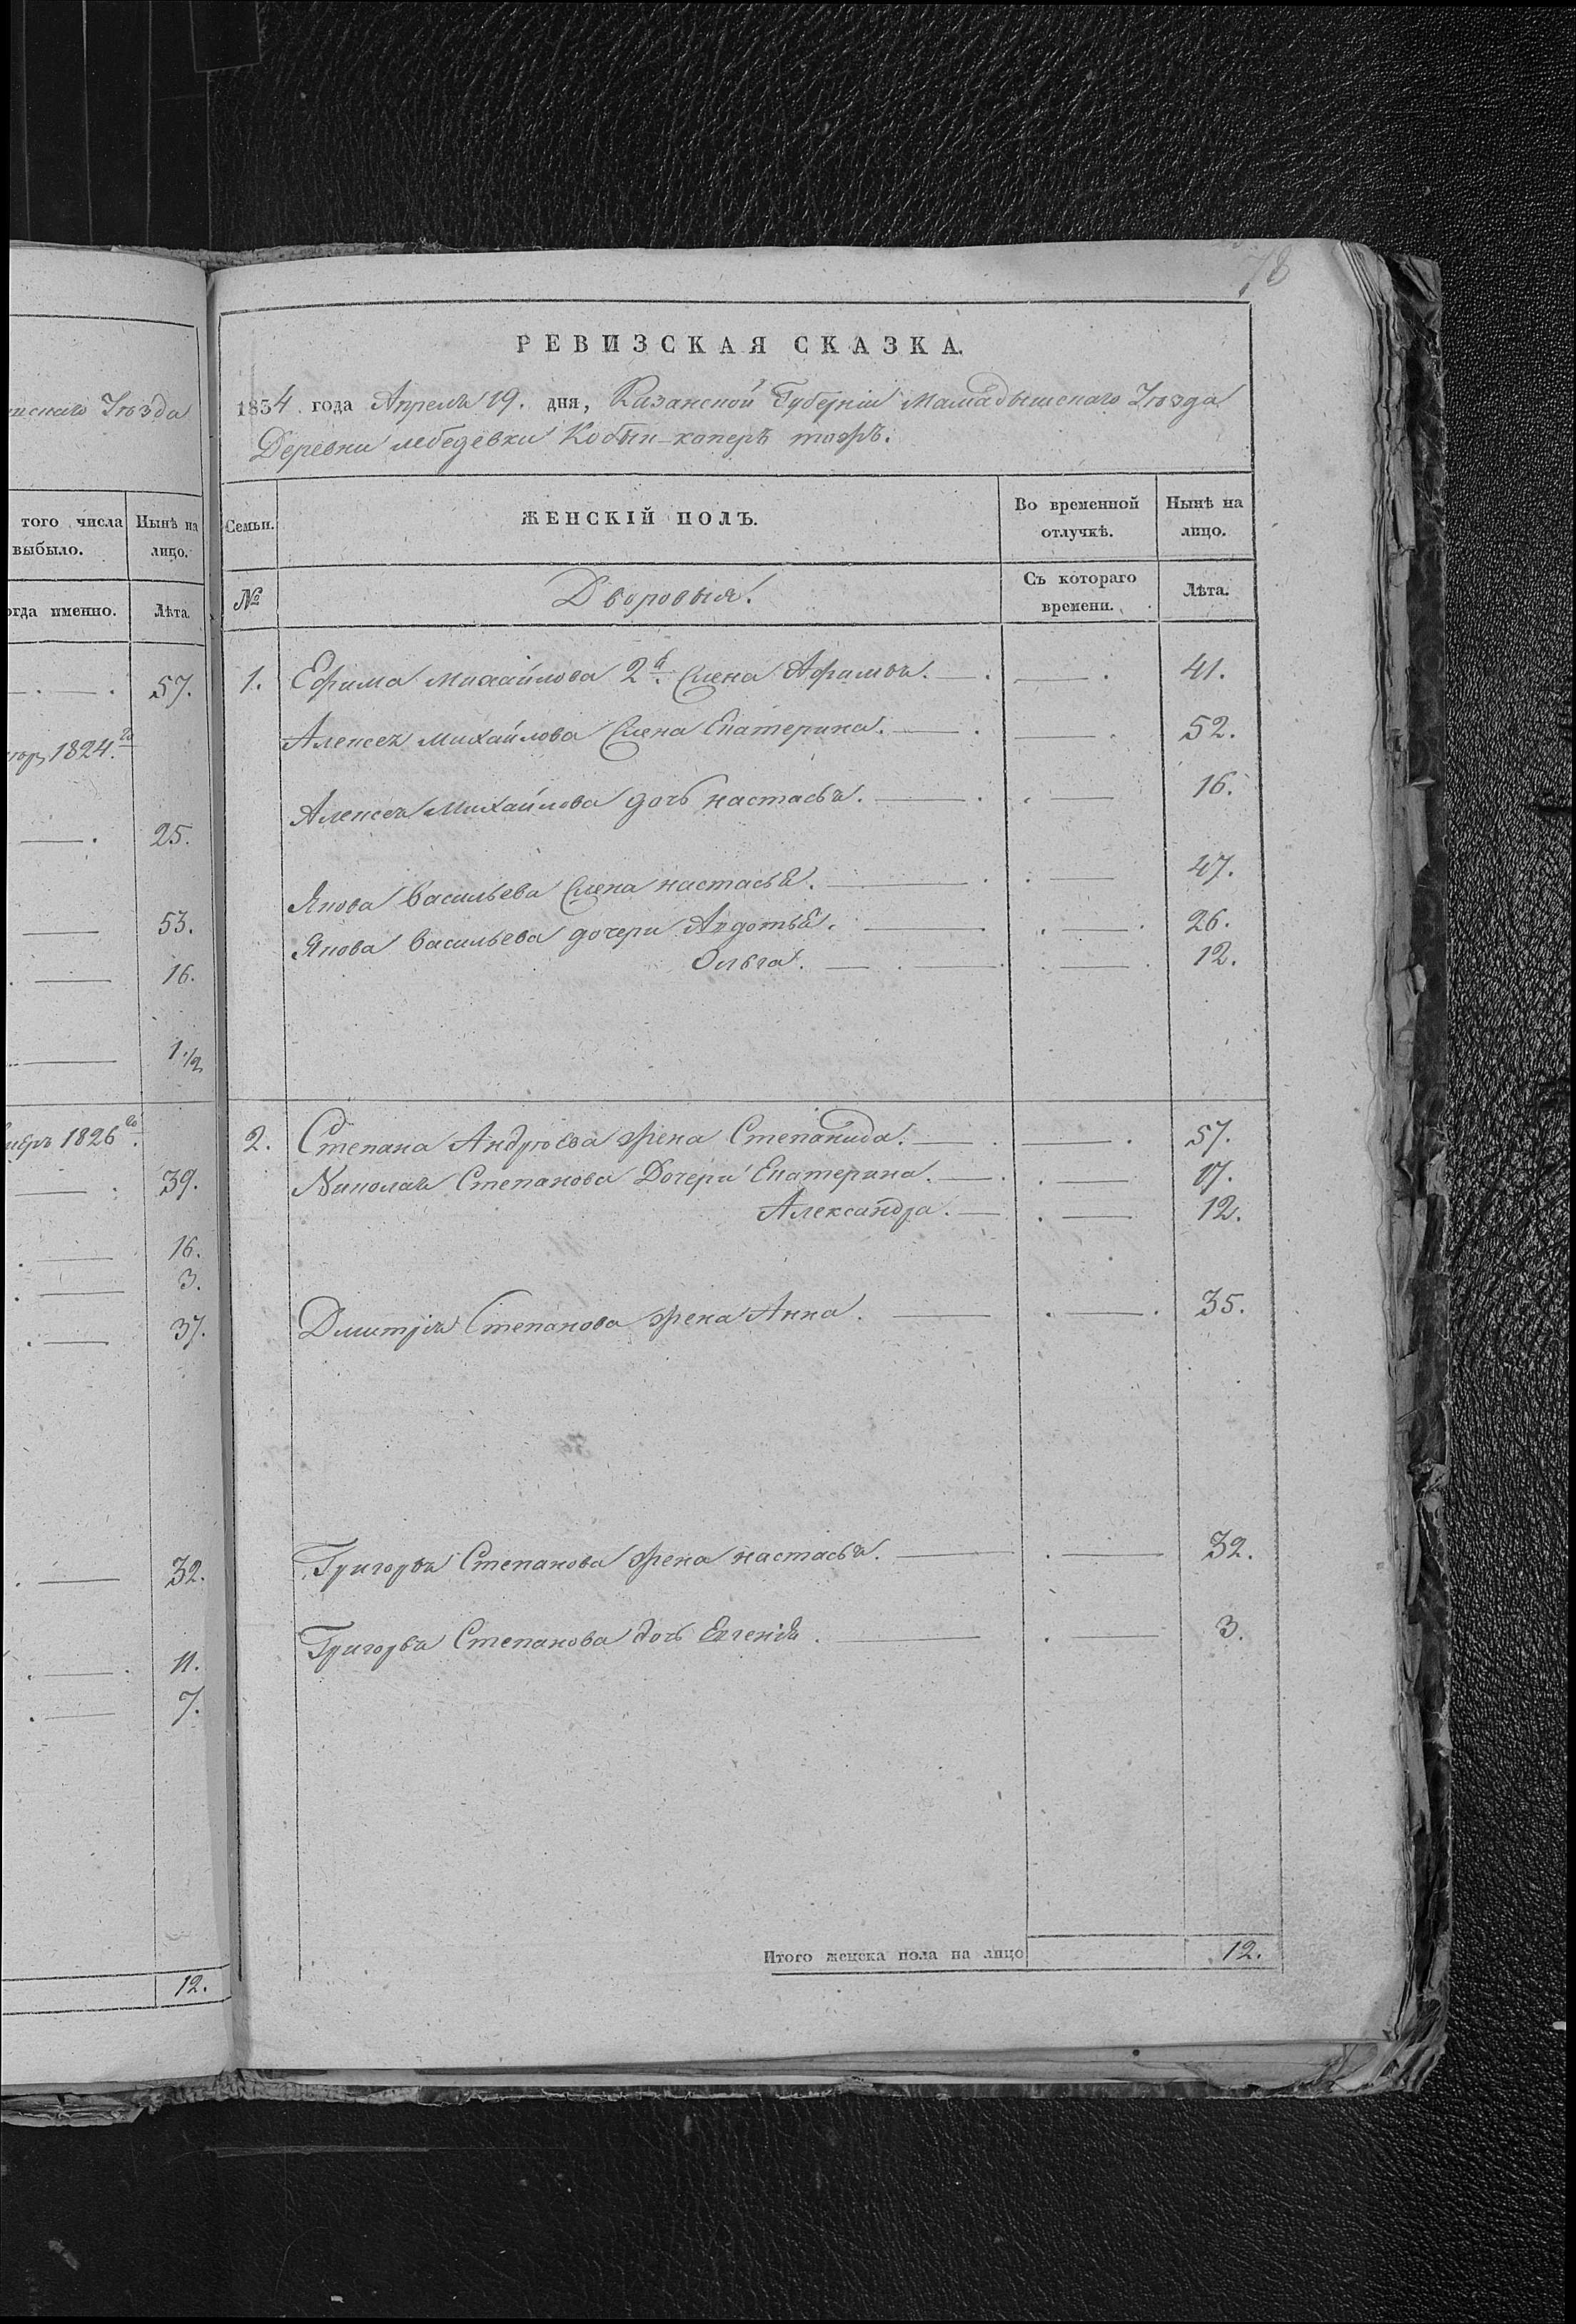 78
енскаго Уѣзда
того числа
выбыло.
Нынѣ на
лицо.
огда именно.
Лѣта.
57.
1824го
25.
53.
16.
1 1/2
1826го.
39.
16.
3.
37.
32.
11.
7.
12.
РЕВИЗСКАЯ СКАЗКА.
1834 года Апреля 19. дня, Казанской Губерніи Мамадышскаго Уѣзда
Деревни лебедевки Кобын-коперъ тожъ.
Семьи. ЖЕНСКІЙ ПОЛЪ. Во временной отлучкѣ. Нынѣ на лицо.
№ Дворовыя. Съ котораго времени. Лѣта.
1. Ефима Михайлова 2я. жена Афимья. 41.
Алексея Михайлова жена Екатерина. 52.
Алексея Михайлова дочь настасья. 16.
Якова Васильева жена настасья. 47.
Якова Васильева дочери Авдотья. 26.
Ольга. 12.
2. Степана Андрѣева жена Степанида. 57.
Николая Степанова Дочери Екатерина. 17.
Александра. 12.
Дмитрія Степанова жена Анна. 35.
Григорья Степанова жена настасья. 32.
Григорья Степанова дочь Евгенія. 3.
Итого женска пола на лицо 12.